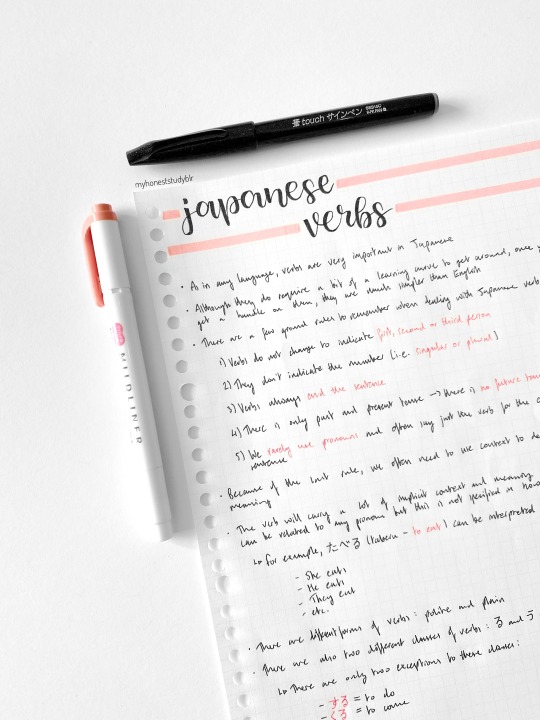 touch サインペン
myhoneststudyblr
japanese
verbs
MILDLINER
• As in any language, verbs are very important in Japanese
• Although they do require a bit of a learning curve to get around, once
get a handle on them, they are much simpler than English
• There are a few ground rules to remember when dealing with Japanese verb
1) Verbs do not change to indicate first, second or third person
2) They don't indicate the number (i.e. singular or plural)
3) Verbs always end the sentence
4) There is only past and present tense → there is no future
5) We rarely use pronouns and often say just the verb for the
sentence
• Because of the last rule, we often need to use context to
meaning
• The verb will carry a lot of implicit context and meaning
can be related to any pronoun but this is not specified in
↳ for example, たべる (taberu - to eat) can be interpreted
- She eats
- He eats
- They eat
- etc.
• There are different forms of verbs: polite and plain
• There are also two different classes of verbs: る and う
↳ There are only two exceptions to these classes:
- する = to do
- くる = to come